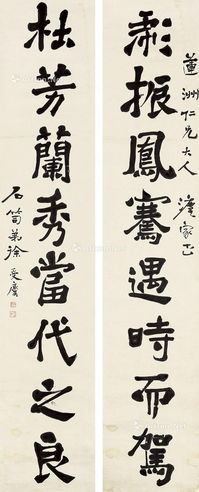 蓮洲仁兄大人 灋家正
振鳳騫遇時而駕
杜芳蘭秀當代之良
弟徐受